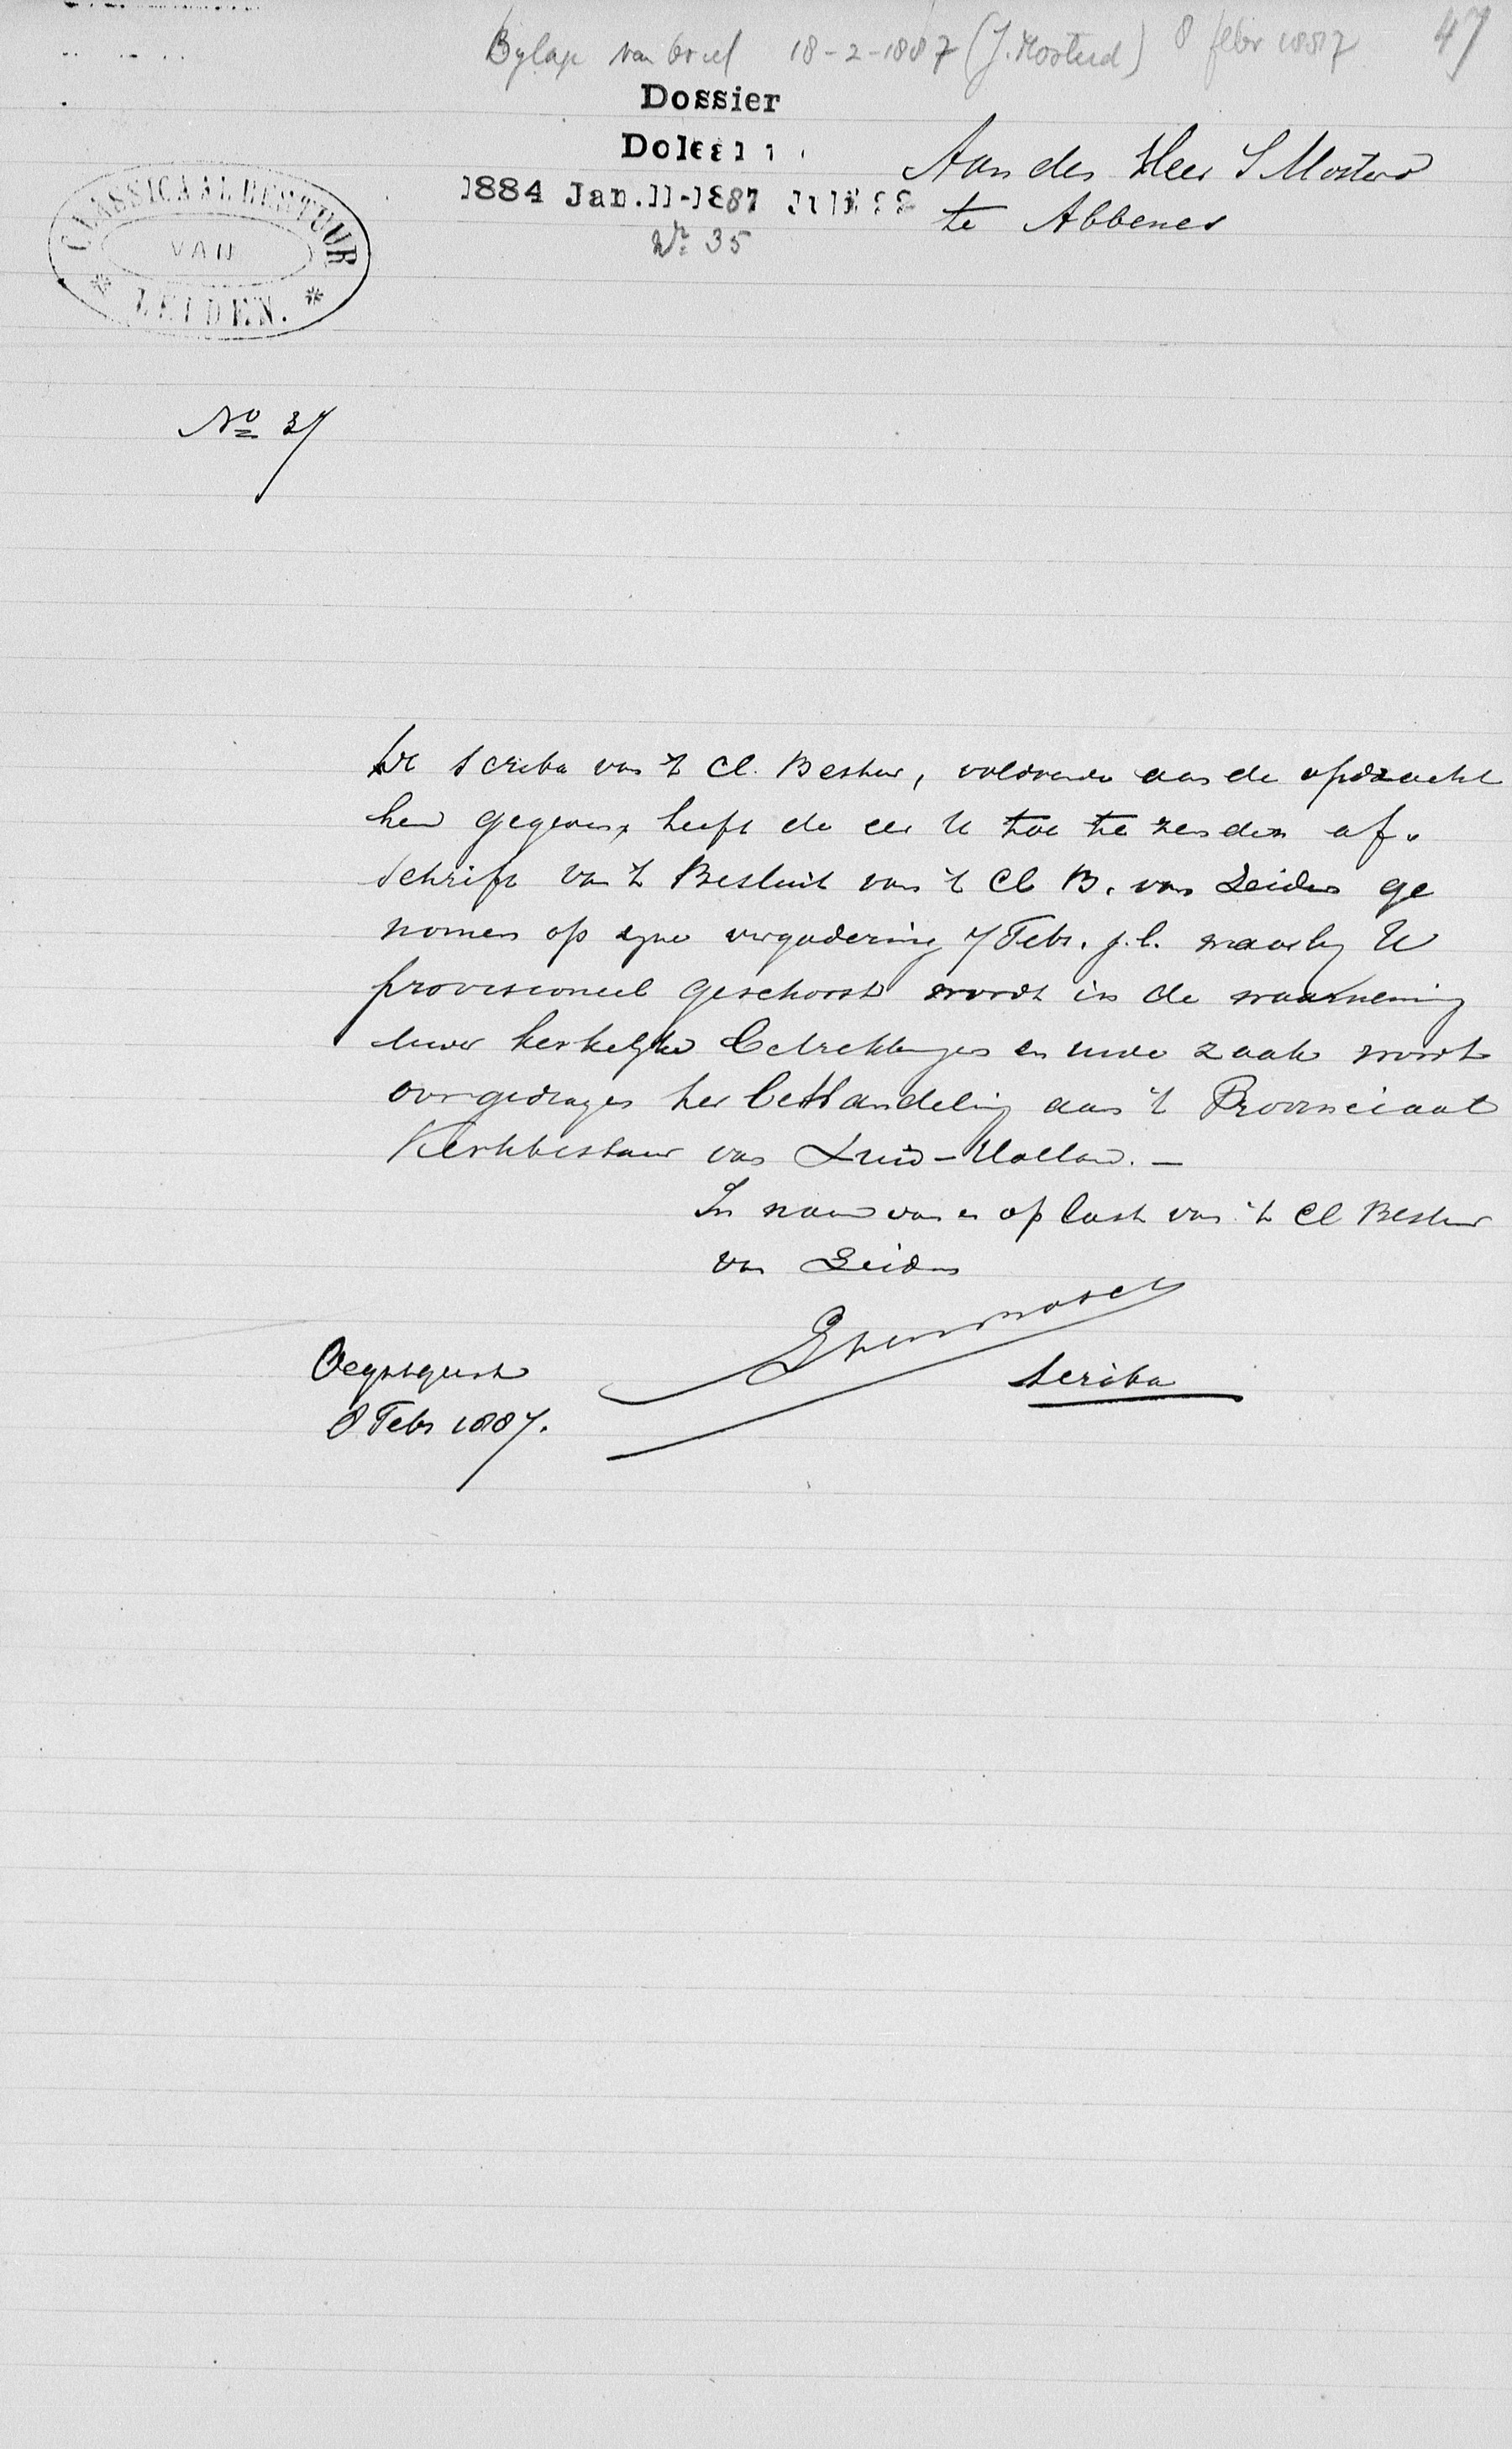 Bylage van brief 18-2-1887 (J. Mosterd) 8 febr 1887 47
Dossier
1884 Jan.11-1887
No 35
CLASSICAAL BESTUUR
VAN
* LEIDEN. *
Aan den Heer J Mosterd
te Abbenes
No 37
De Scriba van 't Cl. Bestuur, voldoende aan de opdracht
hem gegeven, heeft de eer U toe te zenden af-
schrift van 't Besluit van 't Cl B. van Leiden ge
nomen op zyne vergadering 7 Febr. j.l. waarby U
provisioneel geschorst wordt in de waarneming
uwer kerkelyke betrekkingen en uwe zaak wordt
overgedragen ter behandeling aan 't Provinciaal
Kerkbestuur van Zuid-Holland. -
In naam van en op last van 't Cl Bestuur
van Leiden
Scriba
Oegstgeest
8 Febr 1887.